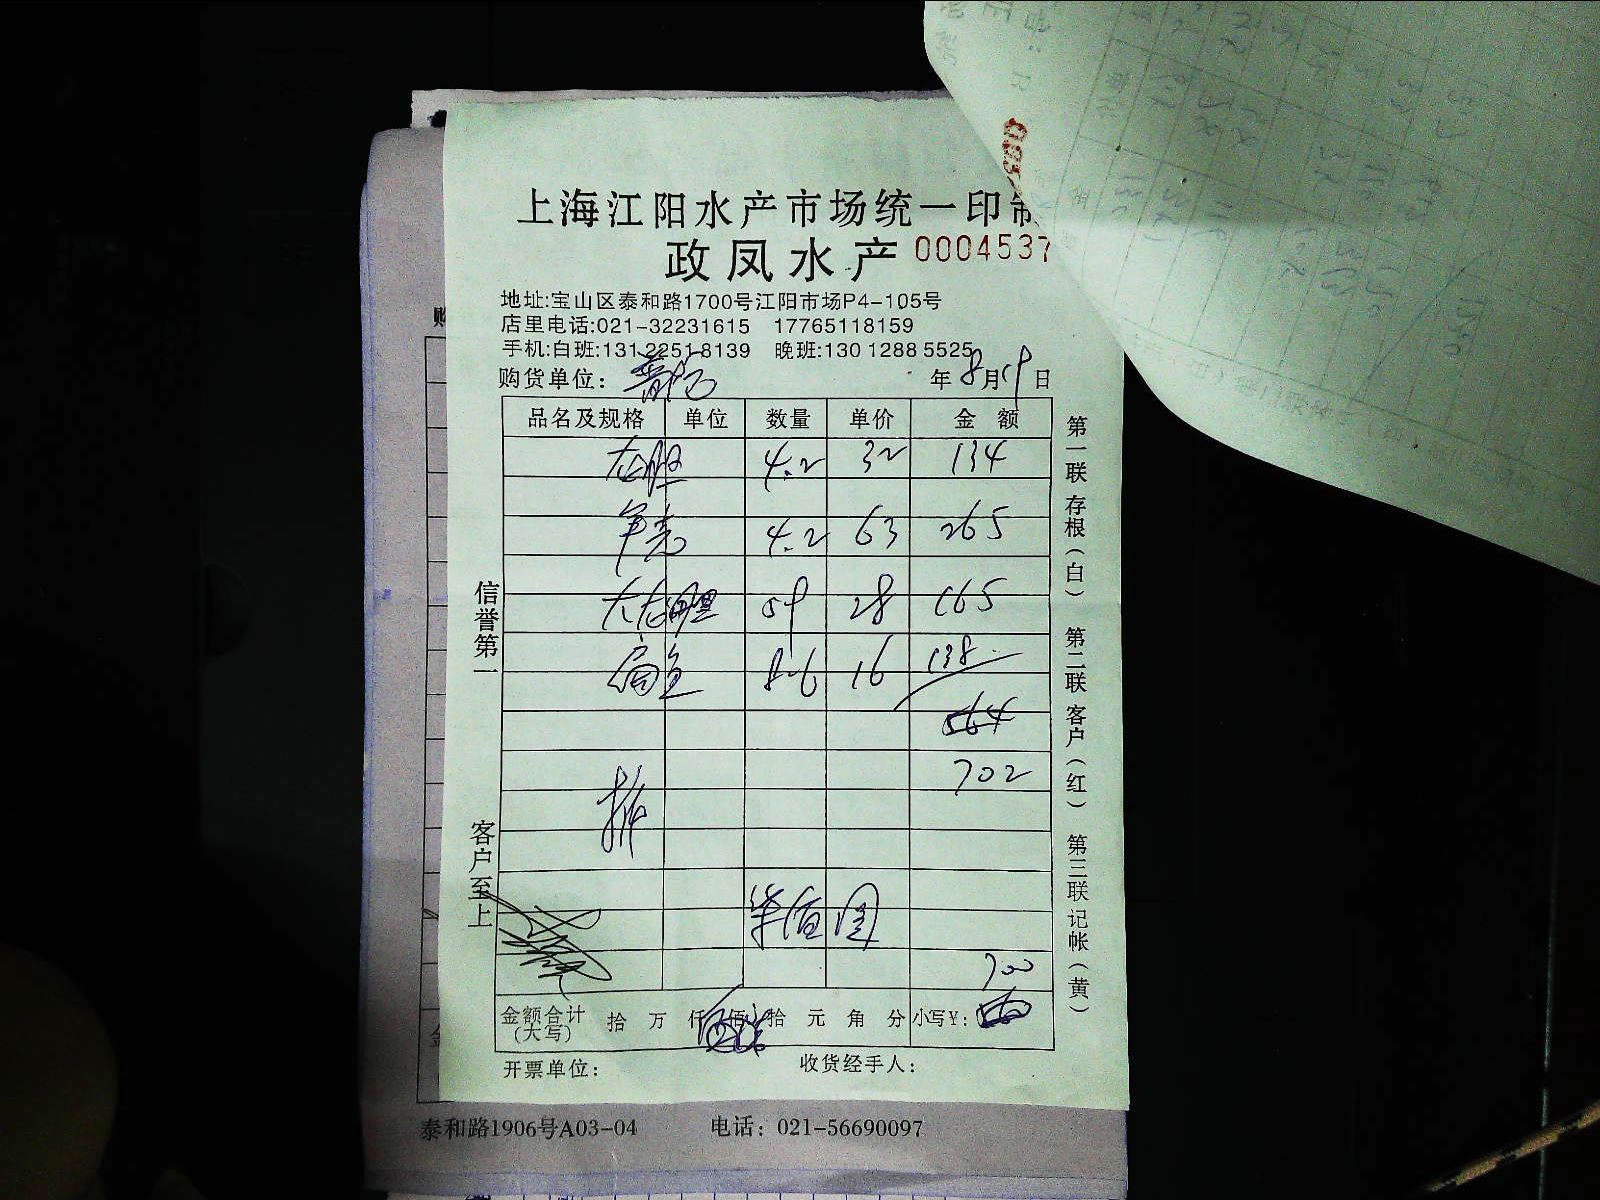 上海江阳水产市场统一印制
政凤水产 0004537
地址:宝山区泰和路1700号江阳市场P4-105号
店里电话:021-32231615 17765118159
手机:白班:131 2251 8139 晚班:130 1288 5525
购货单位: 年 8月19日
品名及规格 单位 数量 单价 金额
龙胆 4.2 32 134
4.2 63 265
大龙胆 59 28 165
扁鱼 8.6 16 138
564
702
柒佰圆
700
金额合计(大写) 拾 万 仟 佰 拾 元 角 分 小写¥:
开票单位: 收货经手人:
信誉第一 客户至上
第一联存根(白) 第二联客户(红) 第三联记帐(黄)
泰和路1906号A03-04 电话: 021-56690097